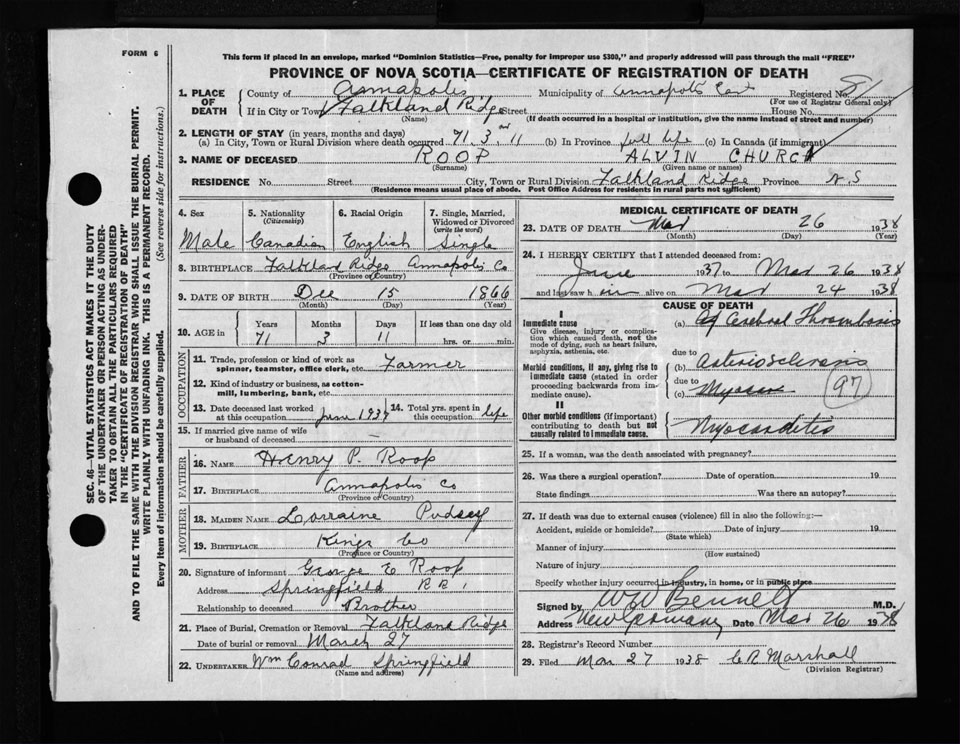 FORM 6
This form if placed in an envelope, marked "Dominion Statistics—Free, penalty for improper use $300," and properly addressed will pass through the mail "FREE"
PROVINCE OF NOVA SCOTIA—CERTIFICATE OF REGISTRATION OF DEATH
SEC. 46—VITAL STATISTICS ACT MAKES IT THE DUTY
OF THE UNDERTAKER OR PERSON ACTING AS UNDER-
TAKER TO OBTAIN ALL THE PARTICULARS REQUIRED
IN THE "CERTIFICATE OF REGISTRATION OF DEATH"
AND TO FILE THE SAME WITH THE DIVISION REGISTRAR WHO SHALL ISSUE THE BURIAL PERMIT.
WRITE PLAINLY WITH UNFADING INK. THIS IS A PERMANENT RECORD.
Every item of information should be carefully supplied. (See reverse side for instructions.)
1. PLACE OF DEATH County of Annapolis Municipality of Annapolis East Registered No. 8
(For use of Registrar General only)
If in City or Town Falkland Ridge Street House No.
(Name) (If death occurred in a hospital or institution, give the name instead of street and number)
2. LENGTH OF STAY (in years, months and days)
(a) In City, Town or Rural Division where death occurred 71. 3. 11 (b) In Province full life (c) In Canada (if immigrant)
3. NAME OF DECEASED ROOP ALVIN CHURCH
(Surname) (Given name or names)
RESIDENCE No. Street City, Town or Rural Division Falkland Ridge Province N.S
(Residence means usual place of abode. Post Office Address for residents in rural parts not sufficient)
4. Sex 5. Nationality (Citizenship) 6. Racial Origin 7. Single, Married, Widowed or Divorced (write the word)
Male Canadian English Single
8. BIRTHPLACE Falkland Ridge Annapolis Co
(Province or Country)
9. DATE OF BIRTH Dec 15 1866
(Month) (Day) (Year)
10. AGE in Years Months Days If less than one day old
71 3 11 hrs. or min.
OCCUPATION
11. Trade, profession or kind of work as spinner, teamster, office clerk, etc. Farmer
12. Kind of industry or business, as cotton-mill, lumbering, bank, etc.
13. Date deceased last worked at this occupation June 1937 14. Total yrs. spent in this occupation life
15. If married give name of wife or husband of deceased —
FATHER
16. NAME Henry P. Roop
17. BIRTHPLACE Annapolis Co
(Province or Country)
MOTHER
18. MAIDEN NAME Lorraine Pudsey
19. BIRTHPLACE Kings Co
(Province or Country)
20. Signature of informant George E Roop
Address Springfield RR 1
Relationship to deceased Brother
21. Place of Burial, Cremation or Removal Falkland Ridge
Date of burial or removal March 27
22. UNDERTAKER Wm Conrad Springfield
(Name and address)
MEDICAL CERTIFICATE OF DEATH
23. DATE OF DEATH Mar 26 1938
(Month) (Day) (Year)
24. I HEREBY CERTIFY that I attended deceased from:
June 1937 to Mar 26 1938
and last saw him alive on Mar 24 1938
CAUSE OF DEATH
I
Immediate cause (a) Cerebral Thrombosis
Give disease, injury or complication which caused death, not the mode of dying, such as heart failure, asphyxia, asthenia, etc.
due to
Morbid conditions, if any, giving rise to immediate cause (stated in order proceeding backwards from immediate cause) (b) Arteriosclerosis
due to
(c) Myocar 97
II
Other morbid conditions (if important) contributing to death but not causally related to immediate cause. Myocarditis
25. If a woman, was the death associated with pregnancy?
26. Was there a surgical operation? Date of operation 19
State findings Was there an autopsy?
27. If death was due to external causes (violence) fill in also the following:—
Accident, suicide or homicide? Date of injury 19
(State which)
Manner of injury
(How sustained)
Nature of injury
Specify whether injury occurred in industry, in home, or in public place
Signed by W W Bennett M.D.
Address New Germany Date Mar 26 1938
28. Registrar's Record Number
29. Filed Mar 27 1938 C R Marshall
(Division Registrar)